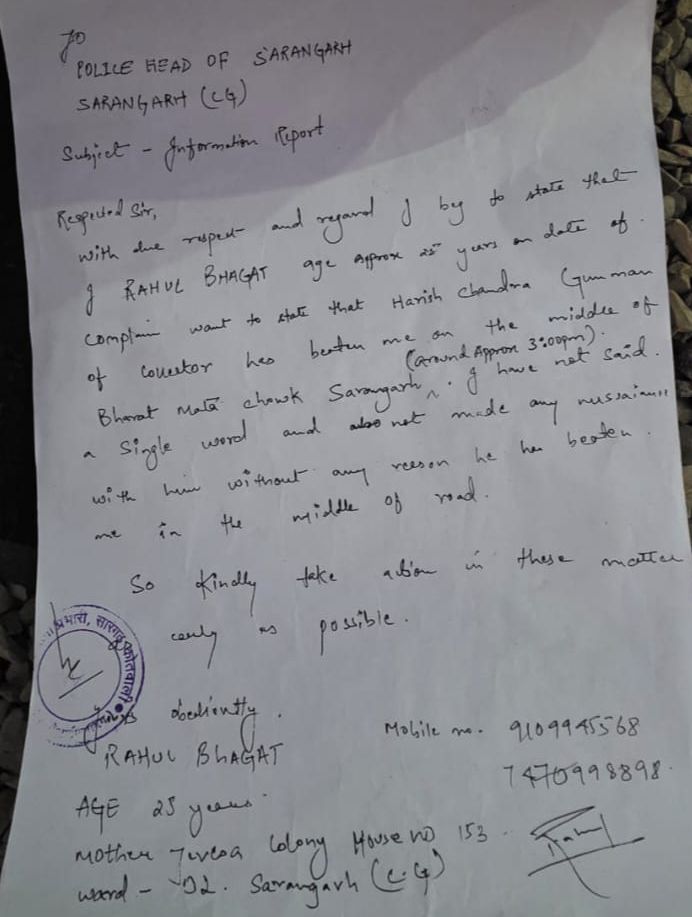 To
POLICE HEAD OF SARANGARH
SARANGARH (CG)
Subject - Information Report
Respected Sir,
with due respect and regard I beg to state that
I RAHUL BHAGAT age approx 25 years on date of
complain want to state that Harish Chandra Gunman
of Collector has beaten me on the middle of
Bharat Mata chowk Sarangarh (around Approx 3:00pm). I have not said
a single word and also not made any nussaiance
with him without any reeson he has beaten
me in the middle of road.
So kindly take action in these matter
early as possible.
प्रभारी, सारंगढ़ कोतवाली
obediently.
RAHUL BHAGAT
Mobile no. 9109945568
7470998898
AGE 25 years
Mother Teresa Colony House no 153
ward - 02. Sarangarh (C.G)
Rahul